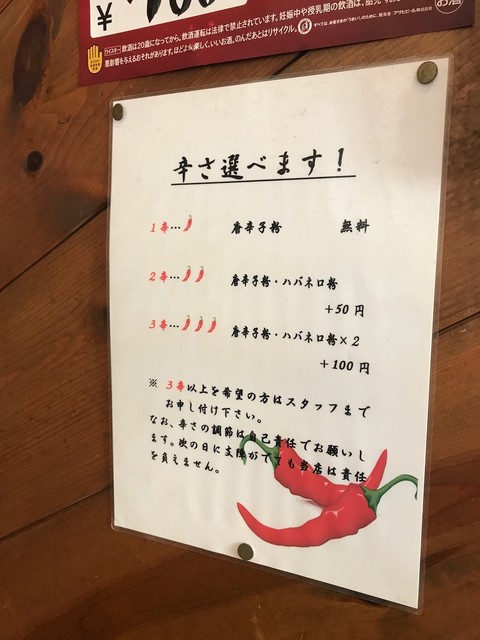 ¥
ウイスキー 飲酒は20歳になってから。飲酒運転は法律で禁止されています。妊娠中や授乳期の飲酒は、胎児
悪影響を与えるおそれがあります。ほどよく楽しく、いいお酒。のんだあとはリサイクル。
アサヒビール株式会社
お酒
辛さ選べます！
1辛… 唐辛子粉 無料
2辛… 唐辛子粉・ハバネロ粉
+50 円
3辛… 唐辛子粉・ハバネロ粉×2
+100 円
※ 3辛以上を希望の方はスタッフまで
お申し付け下さい。
なお、辛さの調節は自己責任でお願いし
ます。次の日に支障がでても当店は責任
を負えません。